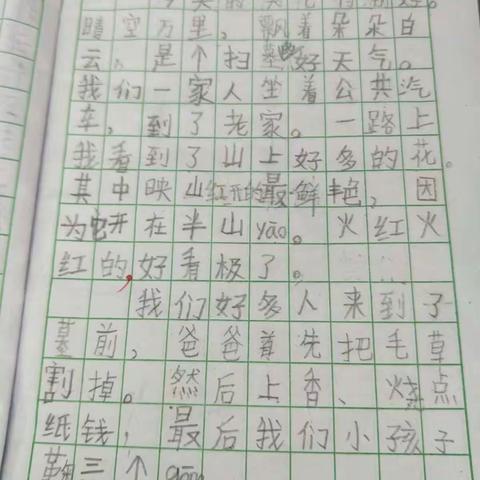 晴空万里，飘着朵朵白
云，是个扫墓的好天气。
我们一家人坐着公共汽
车，到了老家。一路上
我看到了山上好多的花。
其中映山红开的最鲜艳，因
为它开在半山yāo。火红火
红的，好看极了。
我们好多人来到了
墓前，爸爸首先把毛草
割掉。然后上香、烧点
纸钱，最后我们小孩子
鞠三个gōng